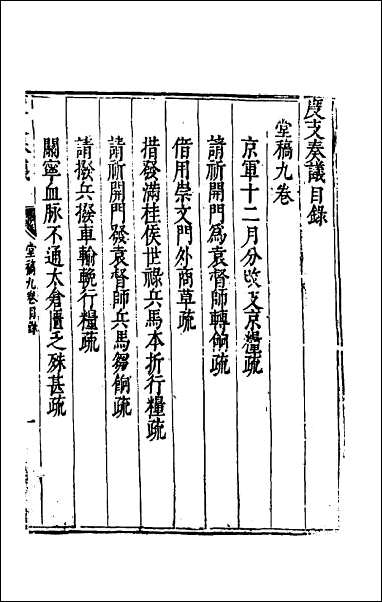 度支奏議目錄
堂稿九卷
京軍十二月分改支京糧疏
請祈開門為袁督師轉餉疏
借用崇文門外商草疏
措發滿桂侯世祿兵馬本折行糧疏
請祈開門發袁督師兵馬芻餉疏
請撥兵撥車輸輓行糧疏
關寧血脉不通太倉匱乏殊甚疏
堂稿九卷目錄
一